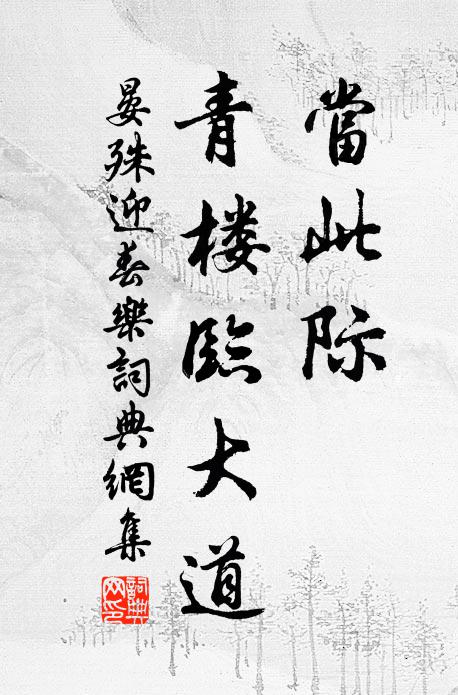 當此际
青楼臨大道
晏殊迎春樂詞典網集
詞典网印